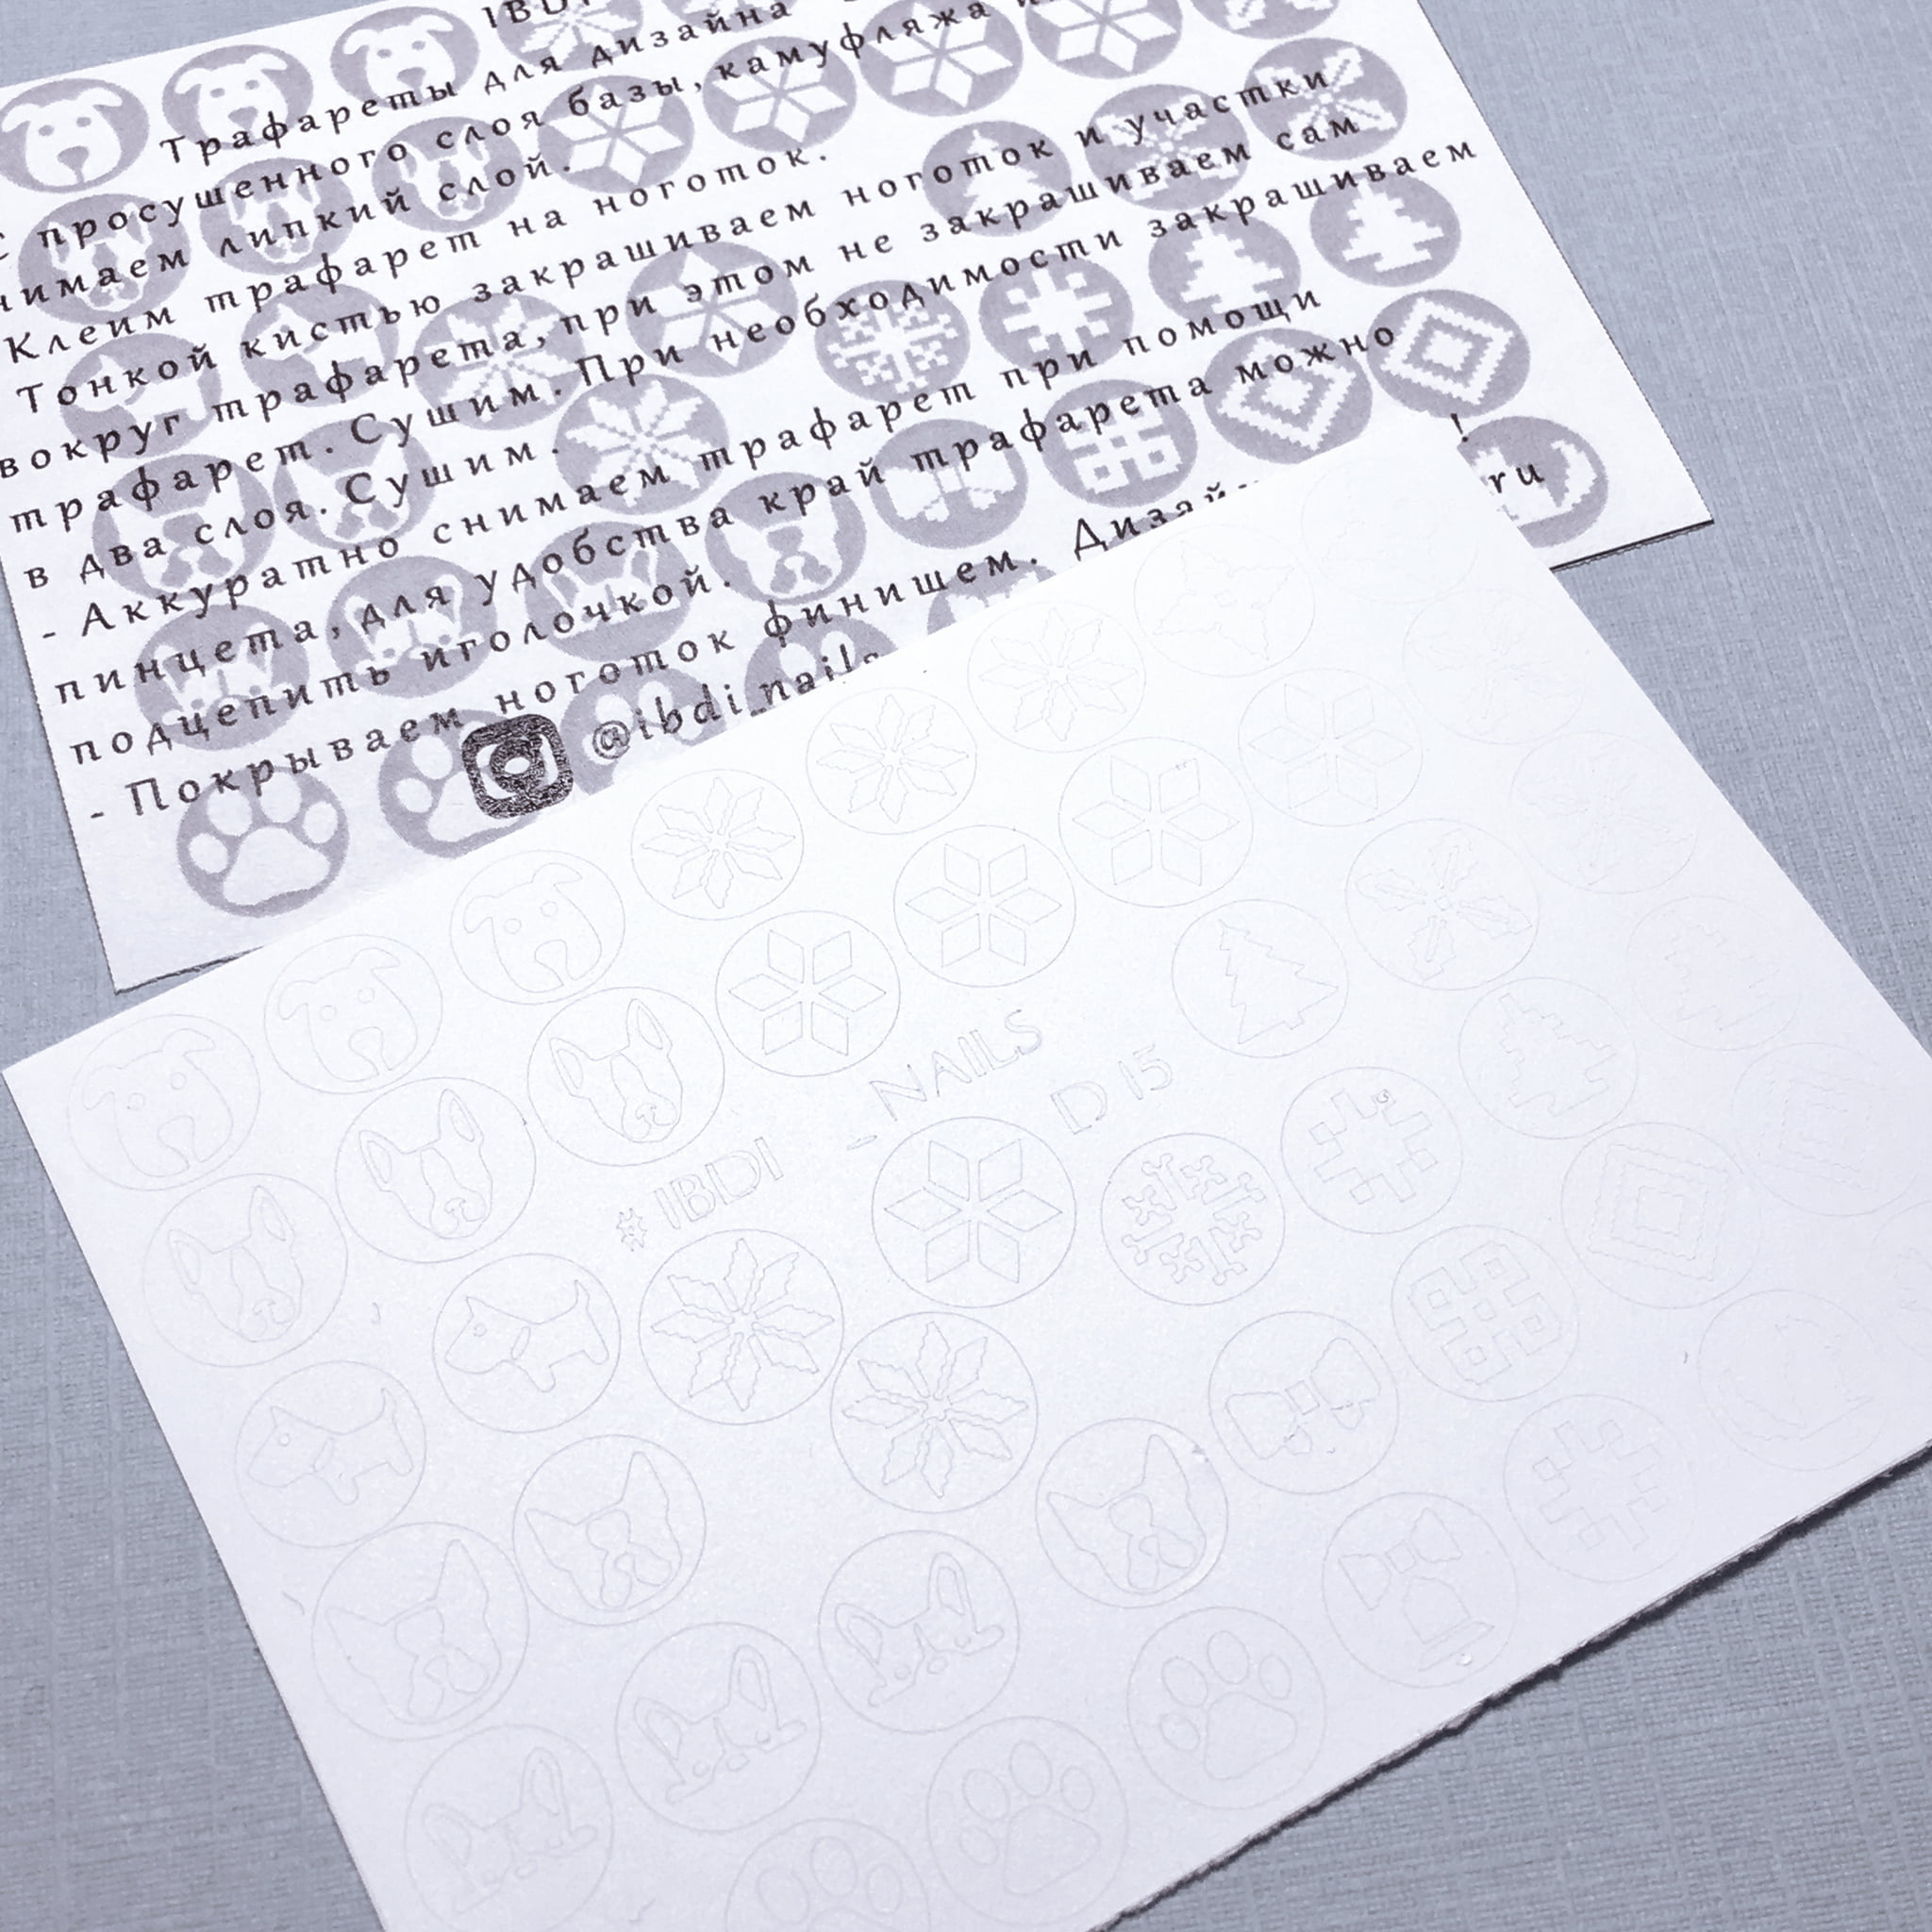 Трафареты для дизайна
с просушенного слоя базы, камуфляжа
липкий слой.
Клеим трафарет на ноготок.
Тонкой кистью закрашиваем ноготок и участки
вокруг трафарета, при этом не закрашиваем сам
трафарет. Сушим. При необходимости закрашиваем
в два слоя. Сушим.
- Аккуратно снимаем трафарет при помощи
пинцета, для удобства край трафарета можно
подцепить иголочкой.
- Покрываем ноготок финишем. !
@ibdi_nails ru
# IBDI - NAILS
D 15